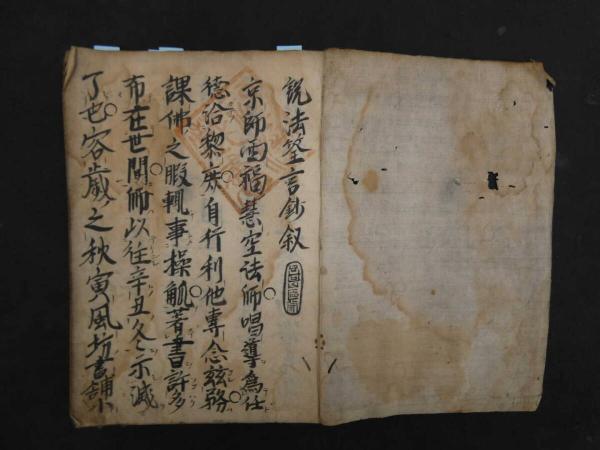 説法筌言鈔叙
京師西福慧空法師唱導為任
徳洽黎庶自行利他専念玆務
課佛之暇輒事操觚著書許多
布在世間師以往辛丑冬示滅
了也客歳之秋寅風坊書舗小